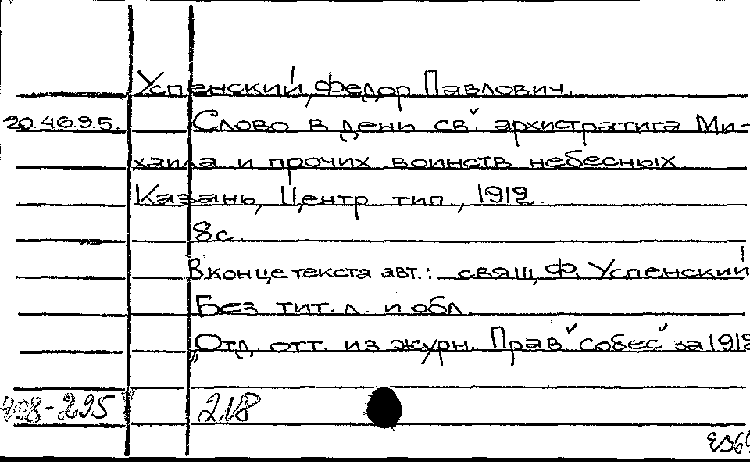 Успенский, Федор Павлович.
20.46.9.5. Слово в день св. архистратига Ми-
хаила и прочих воинств небесных
Казань, Центр. тип., 1912.
8с.
В конце текста авт.: свящ. Ф. Успенский
Без тит. л. и обл.
Отд. отт. из журн. "Прав. собес" за 1912
218